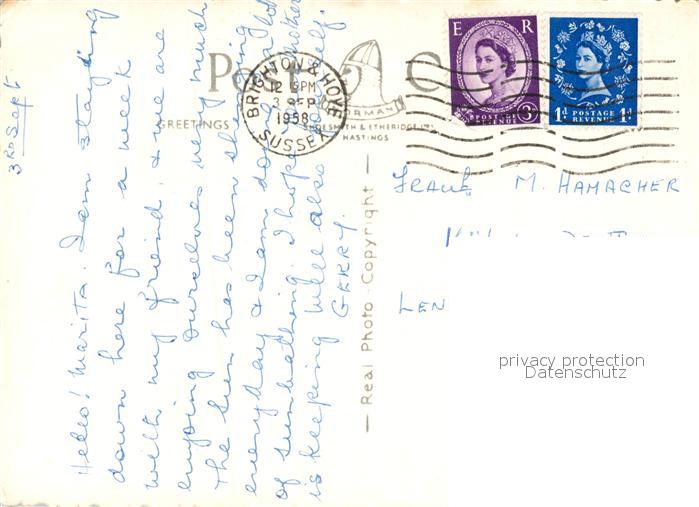 3RD Sept
Hello! Marita. I am staying
down here for a week
with my friend, & we are
enjoying ourselves very much
the sun has been shining
everyday & I am doing lot
of sunbathing. I hope Mother
is keeping well also yourself.
GERRY.
Post C
GREETINGS
NORMAN
SHOESMITH & ETHERIDGE LTD
HASTINGS
— Real Photo - Copyright —
BRIGHTON & HOVE
12 PM
3 SEP
1958
SUSSEX
E R
POSTAGE
REVENUE
3D
1D POSTAGE 1D
REVENUE
M. HAMACHER
LEN
privacy protection
Datenschutz